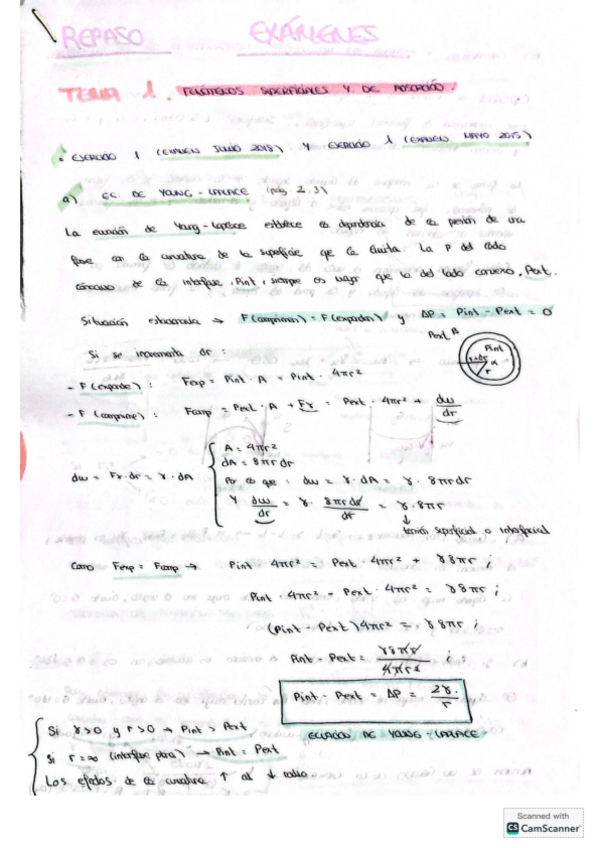 REPASO EXÁMENES
TEMA 1. FENÓMENOS SUPERFICIALES Y DE ADSORCIÓN.
• EJERCICIO 1 (EXAMEN JUNIO 2018) Y EJERCICIO 1 (EXAMEN MAYO 2015)
a) EC. DE YOUNG-LAPLACE (pág 2.3)
La ecuación de Young-Laplace establece la dependencia de la presión de una
fase con la curvatura de la superficie que la limita. La P del lado
cóncavo de la interfase, Pint, siempre es mayor que la del lado convexo, Pext.
Situación estacionaria → F(comprimen) = F(expanden) y ΔP = Pint - Pext = 0
Pext β
Si se incrementa dr:
Pint
r+dr α
r
- F(expande): Fexp = Pint · A = Pint · 4πr²
- F(comprime): Fcomp = Pext · A + Fγ = Pext · 4πr² + dw/dr
A = 4πr²
dA = 8πrdr
dw = Fγ·dr = γ·dA
Por lo que: dw = γ·dA = γ·8πrdr
Y dw/dr = γ· 8πrdr/dr = γ·8πr
↓
tensión superficial o interfacial
Como Fexp = Fcomp → Pint · 4πr² = Pext · 4πr² + γ8πr ;
Pint · 4πr² - Pext · 4πr² = γ8πr ;
(Pint - Pext)4πr² = γ8πr ;
Pint - Pext = γ8πr/4πr² ;
Pint - Pext = ΔP = 2γ/r.
ECUACIÓN DE YOUNG-LAPLACE.
Si γ>0 y r>0 → Pint > Pext
Si r=∞ (interfase plana) → Pint = Pext
Los efectos de la curvatura ↑ al ↓ radio
Scanned with
CS CamScanner